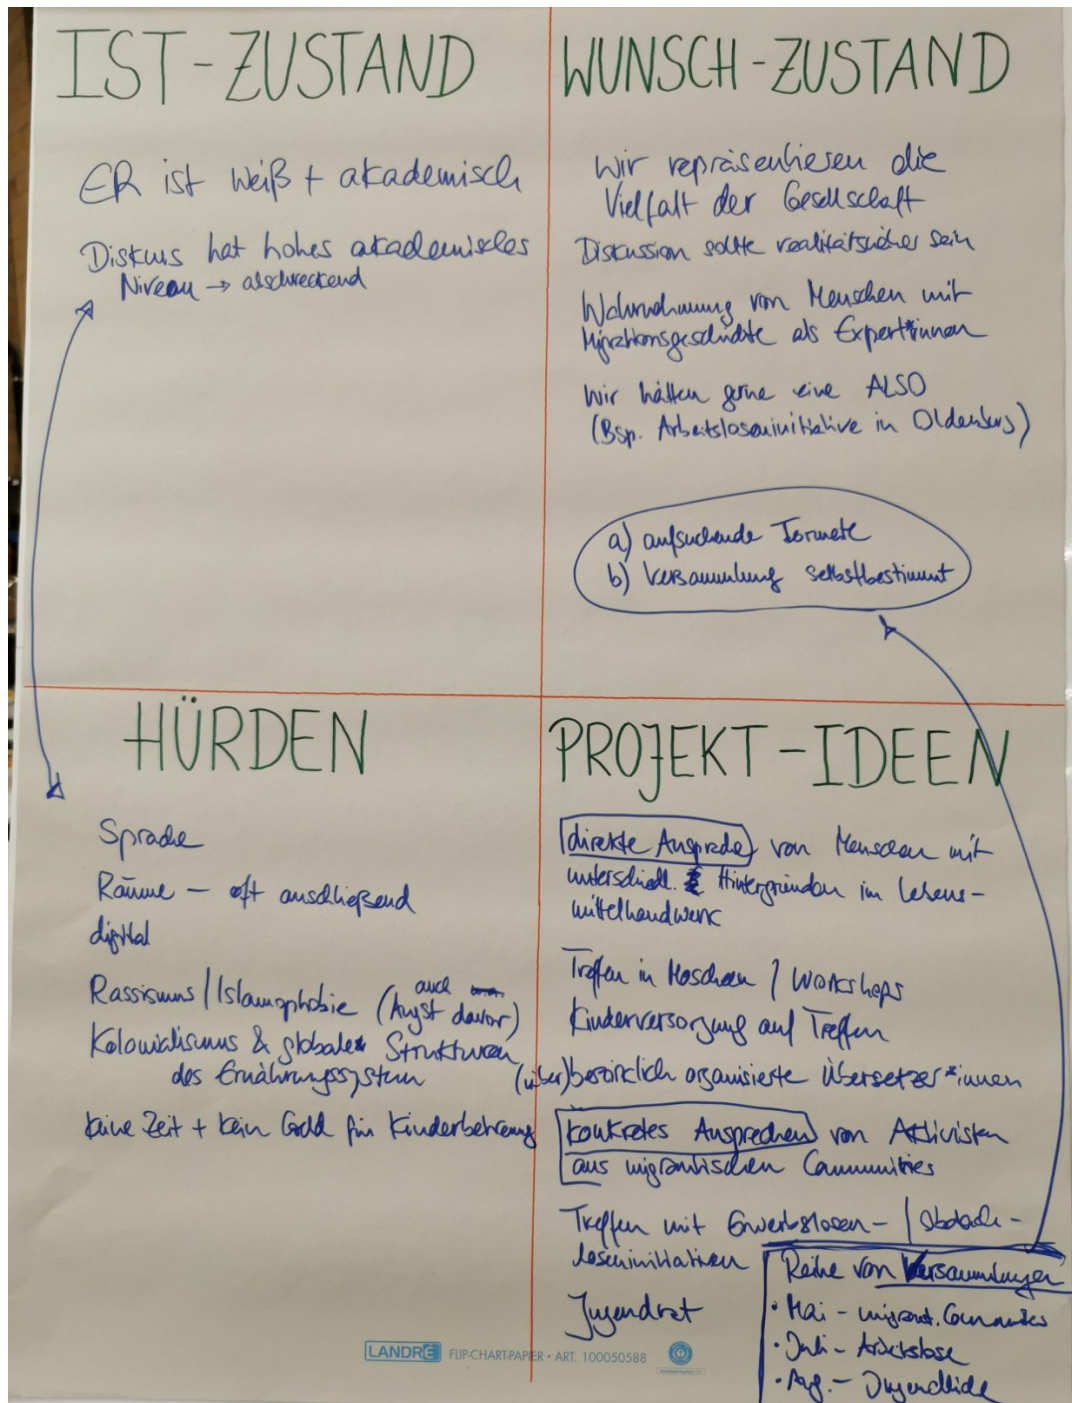 IST-ZUSTAND
ER ist weiß + akademisch
Diskurs hat hohes akademisches
Niveau → abschreckend
WUNSCH-ZUSTAND
Wir repräsentieren die
Vielfalt der Gesellschaft
Diskussion sollte realitätsnäher sein
Wahrnehmung von Menschen mit
Migrationsgeschichte als Expert*innen
Wir hätten gerne eine ALSO
(Bsp. Arbeitsloseninitiative in Oldenburg)
a) aufsuchende Formate
b) Versammlung selbstbestimmt
HÜRDEN
Sprache
Räume – oft
digital
Rassismus / Islamophobie (auch Angst davor)
Kolonialismus & globale Strukturen
des Ernährungssystem
keine Zeit + kein Geld für Kinderbetreung
PROJEKT-IDEEN
direkte Ansprache von Menschen mit
unterschiedl. Hintergründen im Lebens-
mittelhandwerk
Treffen in Moscheen / Workshops
Kinderversorgung auf Treffen
(über)bezirklich organisierte Übersetzer*innen
konkretes Ansprechen von Aktivisten
aus migrantischen Communities
Treffen mit Erwerbslosen- / Obdach-
loseninitiativen
Jugendrat
Reihe von Versammlungen
• Mai – migrant. Communities
• Juli – Arbeitslose
• Aug. – Jugendliche
LANDRÉ FLIP-CHART-PAPIER • ART. 100050588